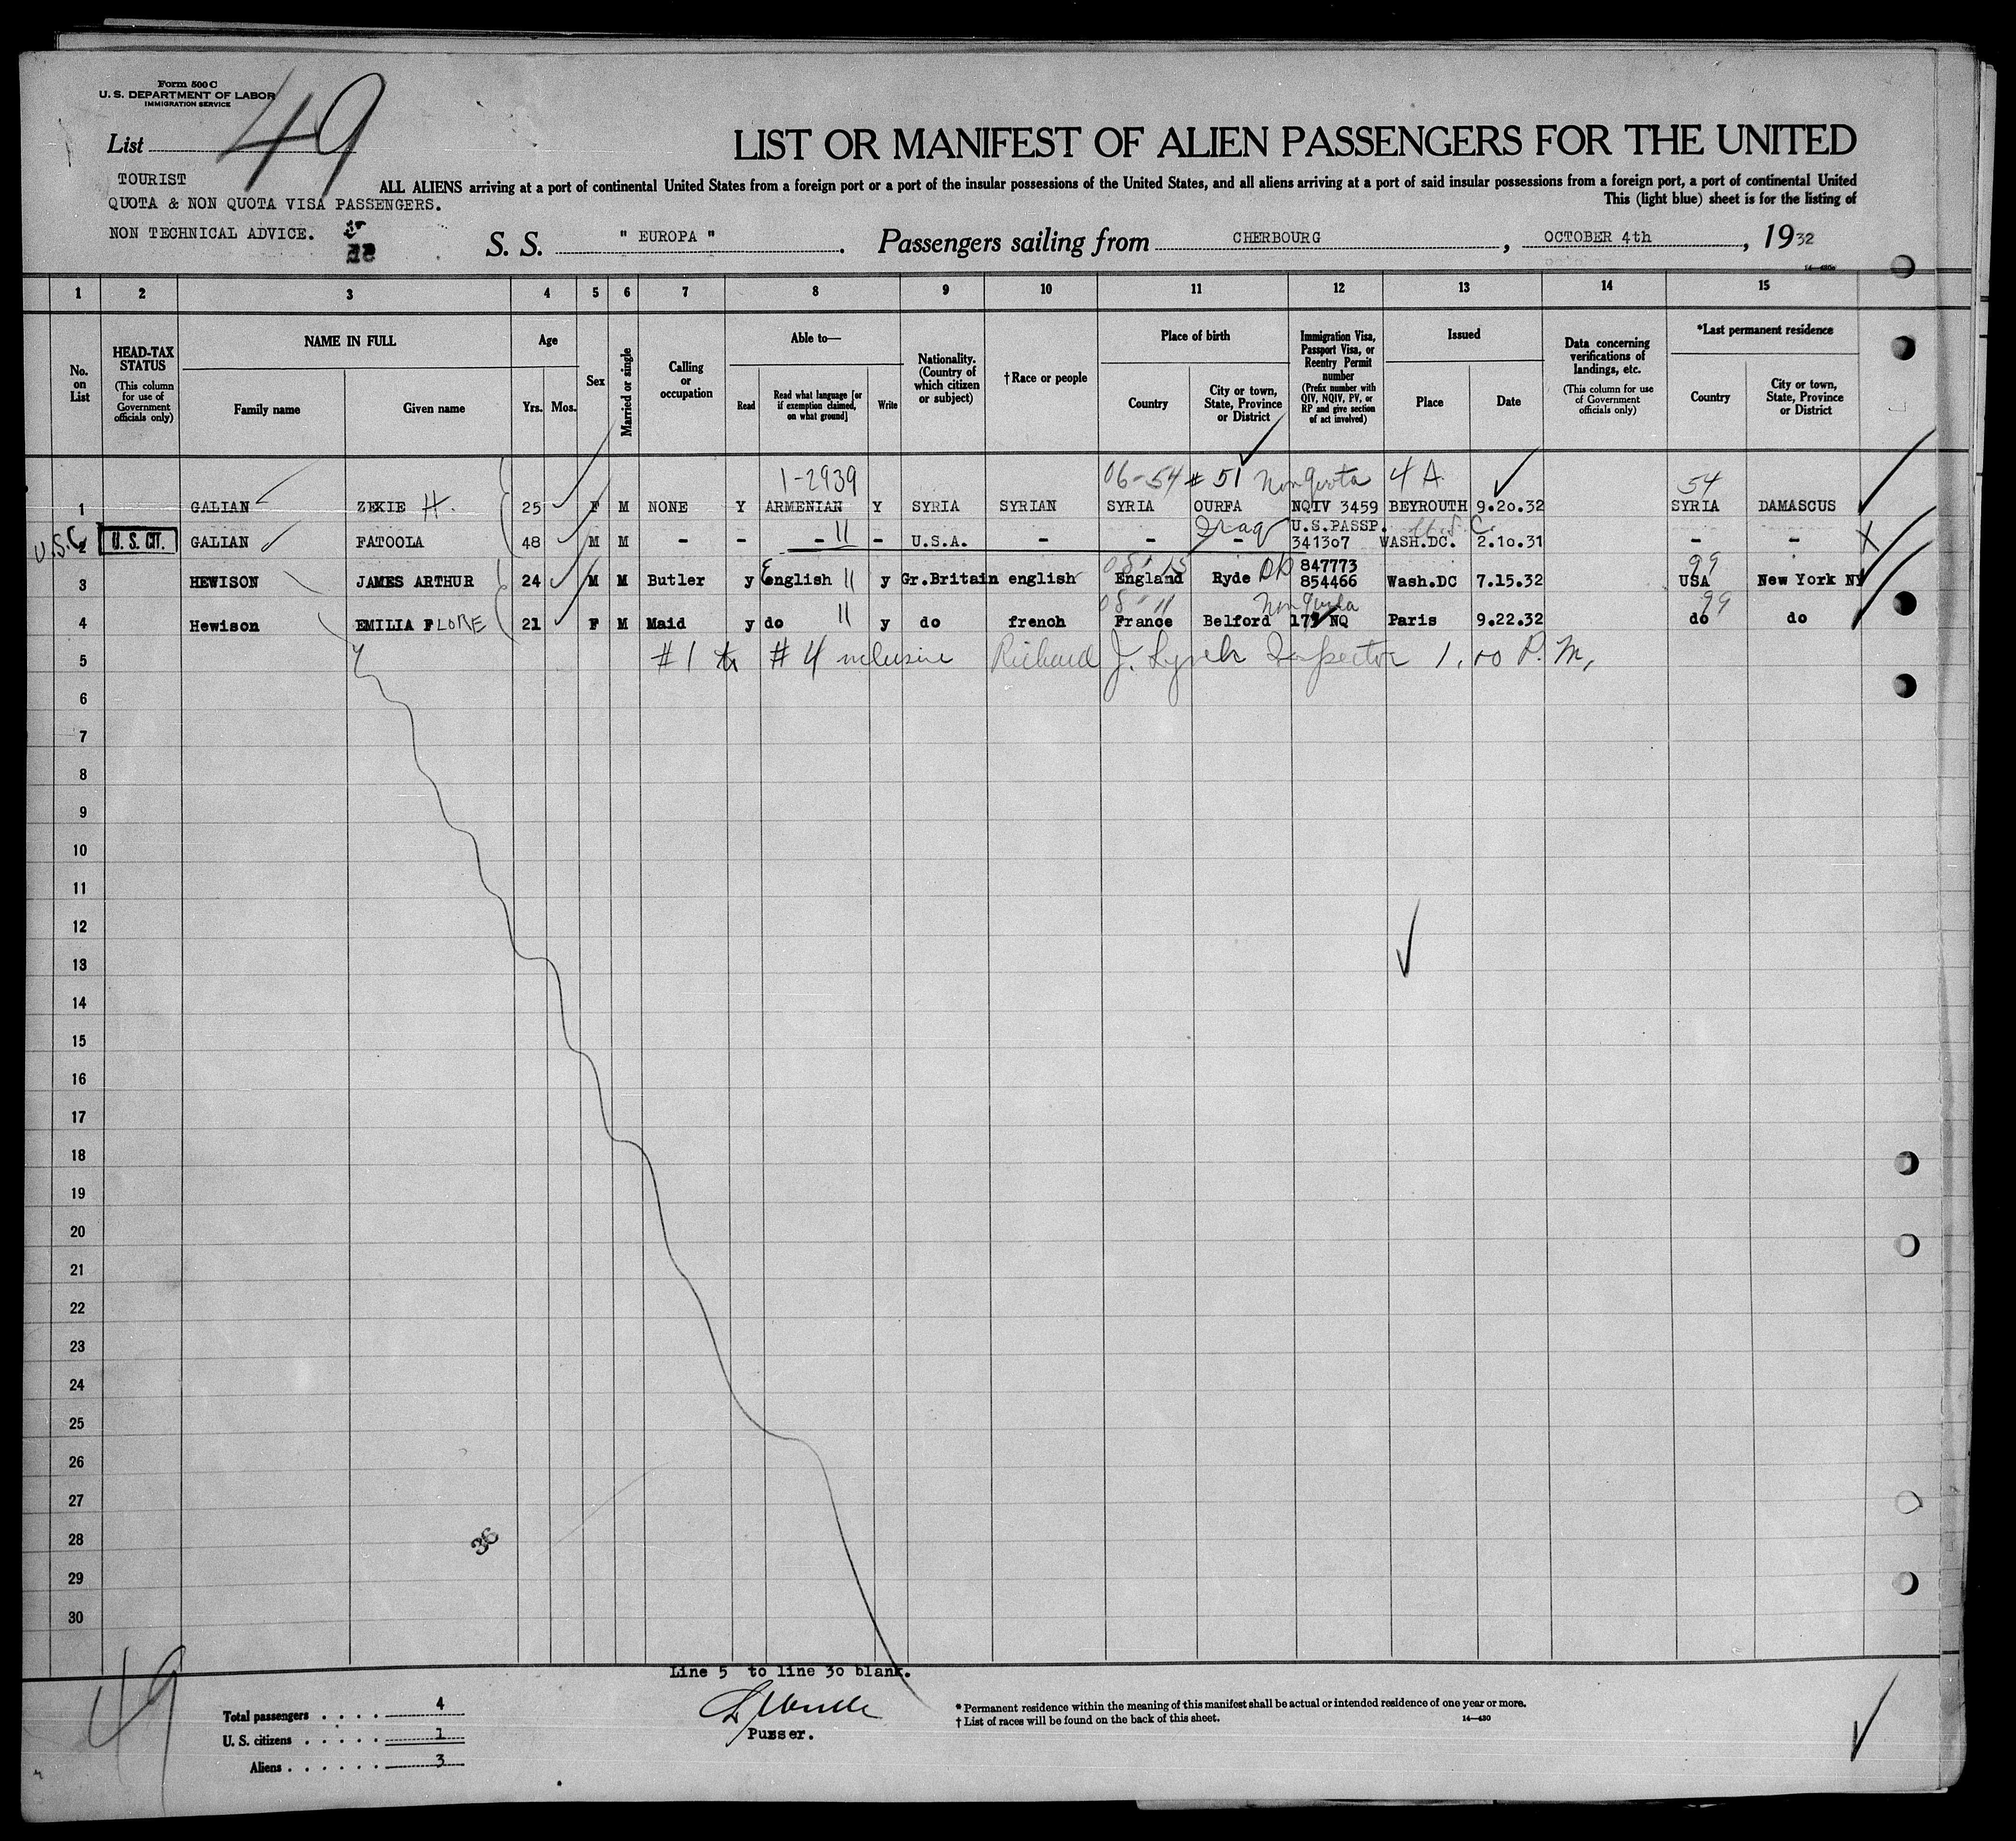 Form 500 C
U. S. DEPARTMENT OF LABOR
IMMIGRATION SERVICE
List 49
LIST OR MANIFEST OF ALIEN PASSENGERS FOR THE UNITED
TOURIST
QUOTA & NON QUOTA VISA PASSENGERS.
NON TECHNICAL ADVICE.
ALL ALIENS arriving at a port of continental United States from a foreign port or a port of the insular possessions of the United States, and all aliens arriving at a port of said insular possessions from a foreign port, a port of continental United
This (light blue) sheet is for the listing of
S. S. " EUROPA ". Passengers sailing from CHERBOURG, OCTOBER 4th, 1932
14—430
1 2 3 4 5 6 7 8 9 10 11 12 13 14 15
No. on List
HEAD-TAX STATUS (This column for use of Government officials only)
NAME IN FULL
Family name Given name
Age
Yrs. Mos.
Sex
Married or single
Calling or occupation
Able to—
Read Read what language [or if exemption claimed, on what ground] Write
Nationality. (Country of which citizen or subject)
†Race or people
Place of birth
Country City or town, State, Province or District
Immigration Visa, Passport Visa, or Reentry Permit number (Prefix number with QIV, NQIV, PV, or RP and give section of act involved)
Issued
Place Date
Data concerning verifications of landings, etc. (This column for use of Government officials only)
*Last permanent residence
Country City or town, State, Province or District
1-2939 06-54 # 51 Non Quota 4 A. 54
1 GALIAN ZEKIE H. 25 F M NONE Y ARMENIAN Y SYRIA SYRIAN SYRIA OURFA NQIV 3459 BEYROUTH 9.20.32 SYRIA DAMASCUS
Iraq U.S.PASSP.
U.S.C. 2 U. S. CIT. GALIAN FATOOLA 48 M M - - - 11 - U.S.A. - - - 341307 WASH.DC. 2.10.31 - -
847773 99
3 HEWISON JAMES ARTHUR 24 M M Butler y English 11 y Gr.Britain english England Ryde OK 854466 Wash.DC 7.15.32 USA New York NY
08 11 Non Quota 99
4 Hewison EMILIA FLORE 21 F M Maid y do 11 y do french France Belford 179 NQ Paris 9.22.32 do do
5 #1 to #4 inclusive Richard J. Lynch Inspector 1.00 P. M.
6
7
8
9
10
11
12
13
14
15
16
17
18
19
20
21
22
23
24
25
26
27
28
29
30
36
Line 5 to line 30 blank.
49
Total passengers . . . . 4
U. S. citizens . . . . . 1
Aliens . . . . . . 3
Purser.
* Permanent residence within the meaning of this manifest shall be actual or intended residence of one year or more.
† List of races will be found on the back of this sheet.
14—430